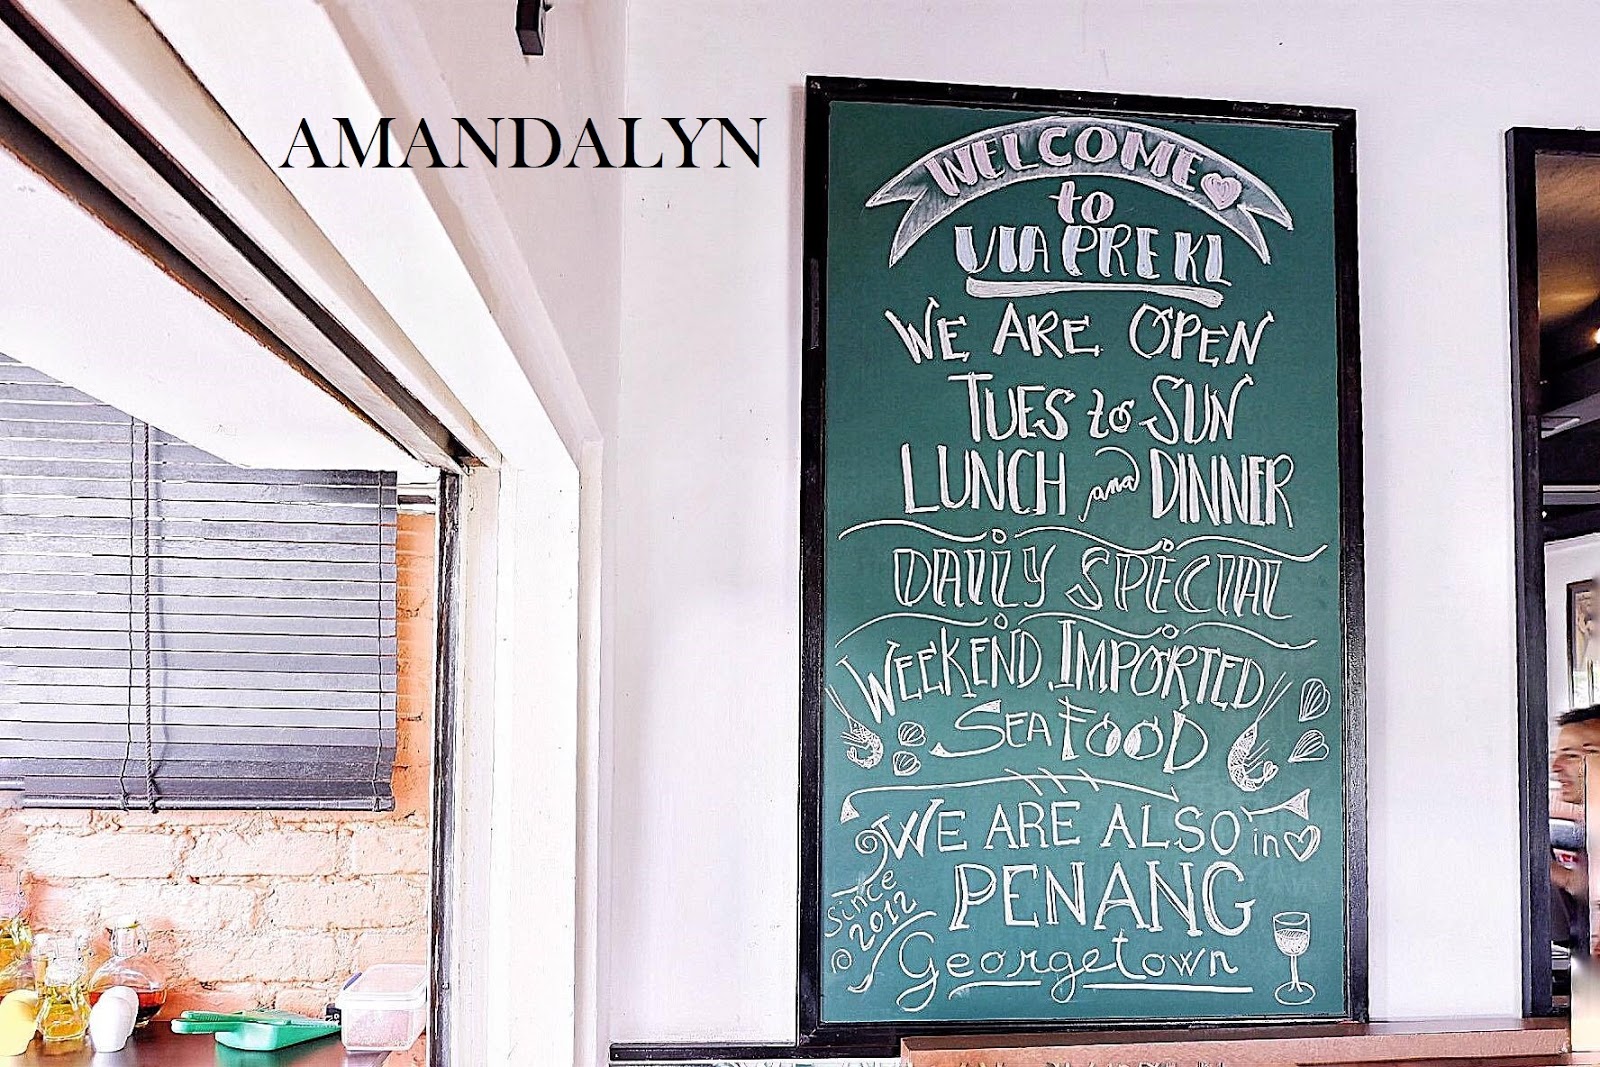 AMANDALYN
WELCOME
to
VIA PRE KL
WE ARE OPEN
TUES to SUN
LUNCH and DINNER
DAILY SPECIAL
WEEKEND IMPORTED
SEAFOOD
WE ARE ALSO in
PENANG
Since
2012
Georgetown